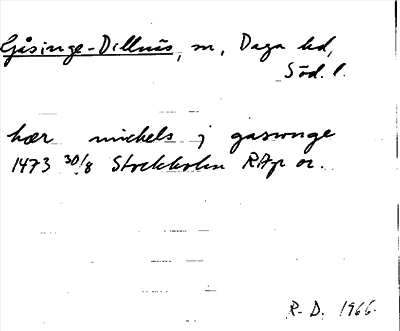 Gåsinge-Dillnäs, sn, Daga hd,
Söd. l.
hær michels j gasinge
1473 30/8 Stockholm RAp or.
R-D. 1966.